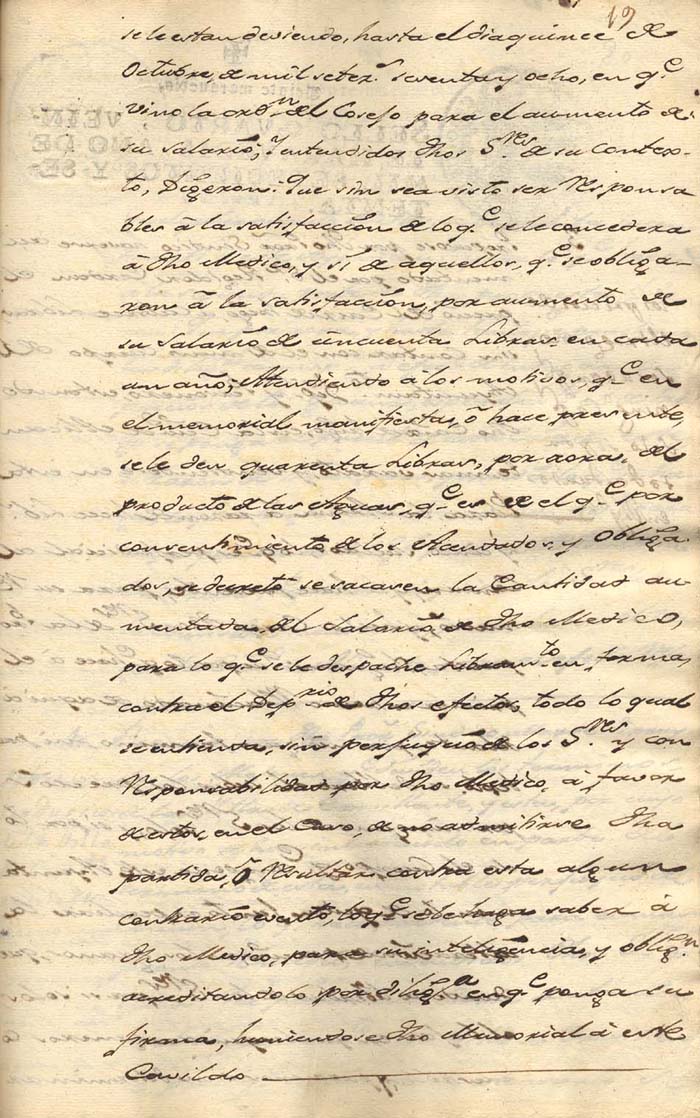 19
se le estan deviendo, hasta el dia quince de
Octubre, de mil setez.s setenta y ocho, en q.e
vino la ord.n del Cosejo para el aumento de
su salario; y entendidos dhos S.res de su contex-
to, Digeron: Que sin sea visto ser responsa
bles à la satisfaccion de lo q.e se le concedera
à dho Medico, y sí de aquellos, q.e se obliga-
ron à la satisfaccion, por aumento de
su salario de cincuenta Libras en cada
un año; Atendiento à los motivos, q.e en
el memorial manifiesta, ò hace presente,
se le den quarenta Libras, por aora, del
producto de las Aguas, q.e es de el q.e por
consentimiento de los Acendados, y obliga
dos, se decretò se sacasen la Cantidad au-
mentada del Salario de dho Medico,
para lo q.e se le despache Libram.to en forma,
contra el Dep.rio de dhos efectos, todo lo qual
se entienda, sin perjuyio de los S.res y con
responsabilidad por dho Medico, à favor
de estos, en el Caso, de no admitirse dha
partida, ò resultar contra esta algun
contrario evento, lo q.e se le haga saber à
dho Medico, para su inteligencia, y oblig.n
acreditandolo por dilig.a en q.e ponga su
firma, huniendose dho Memorial à este
Cavildo